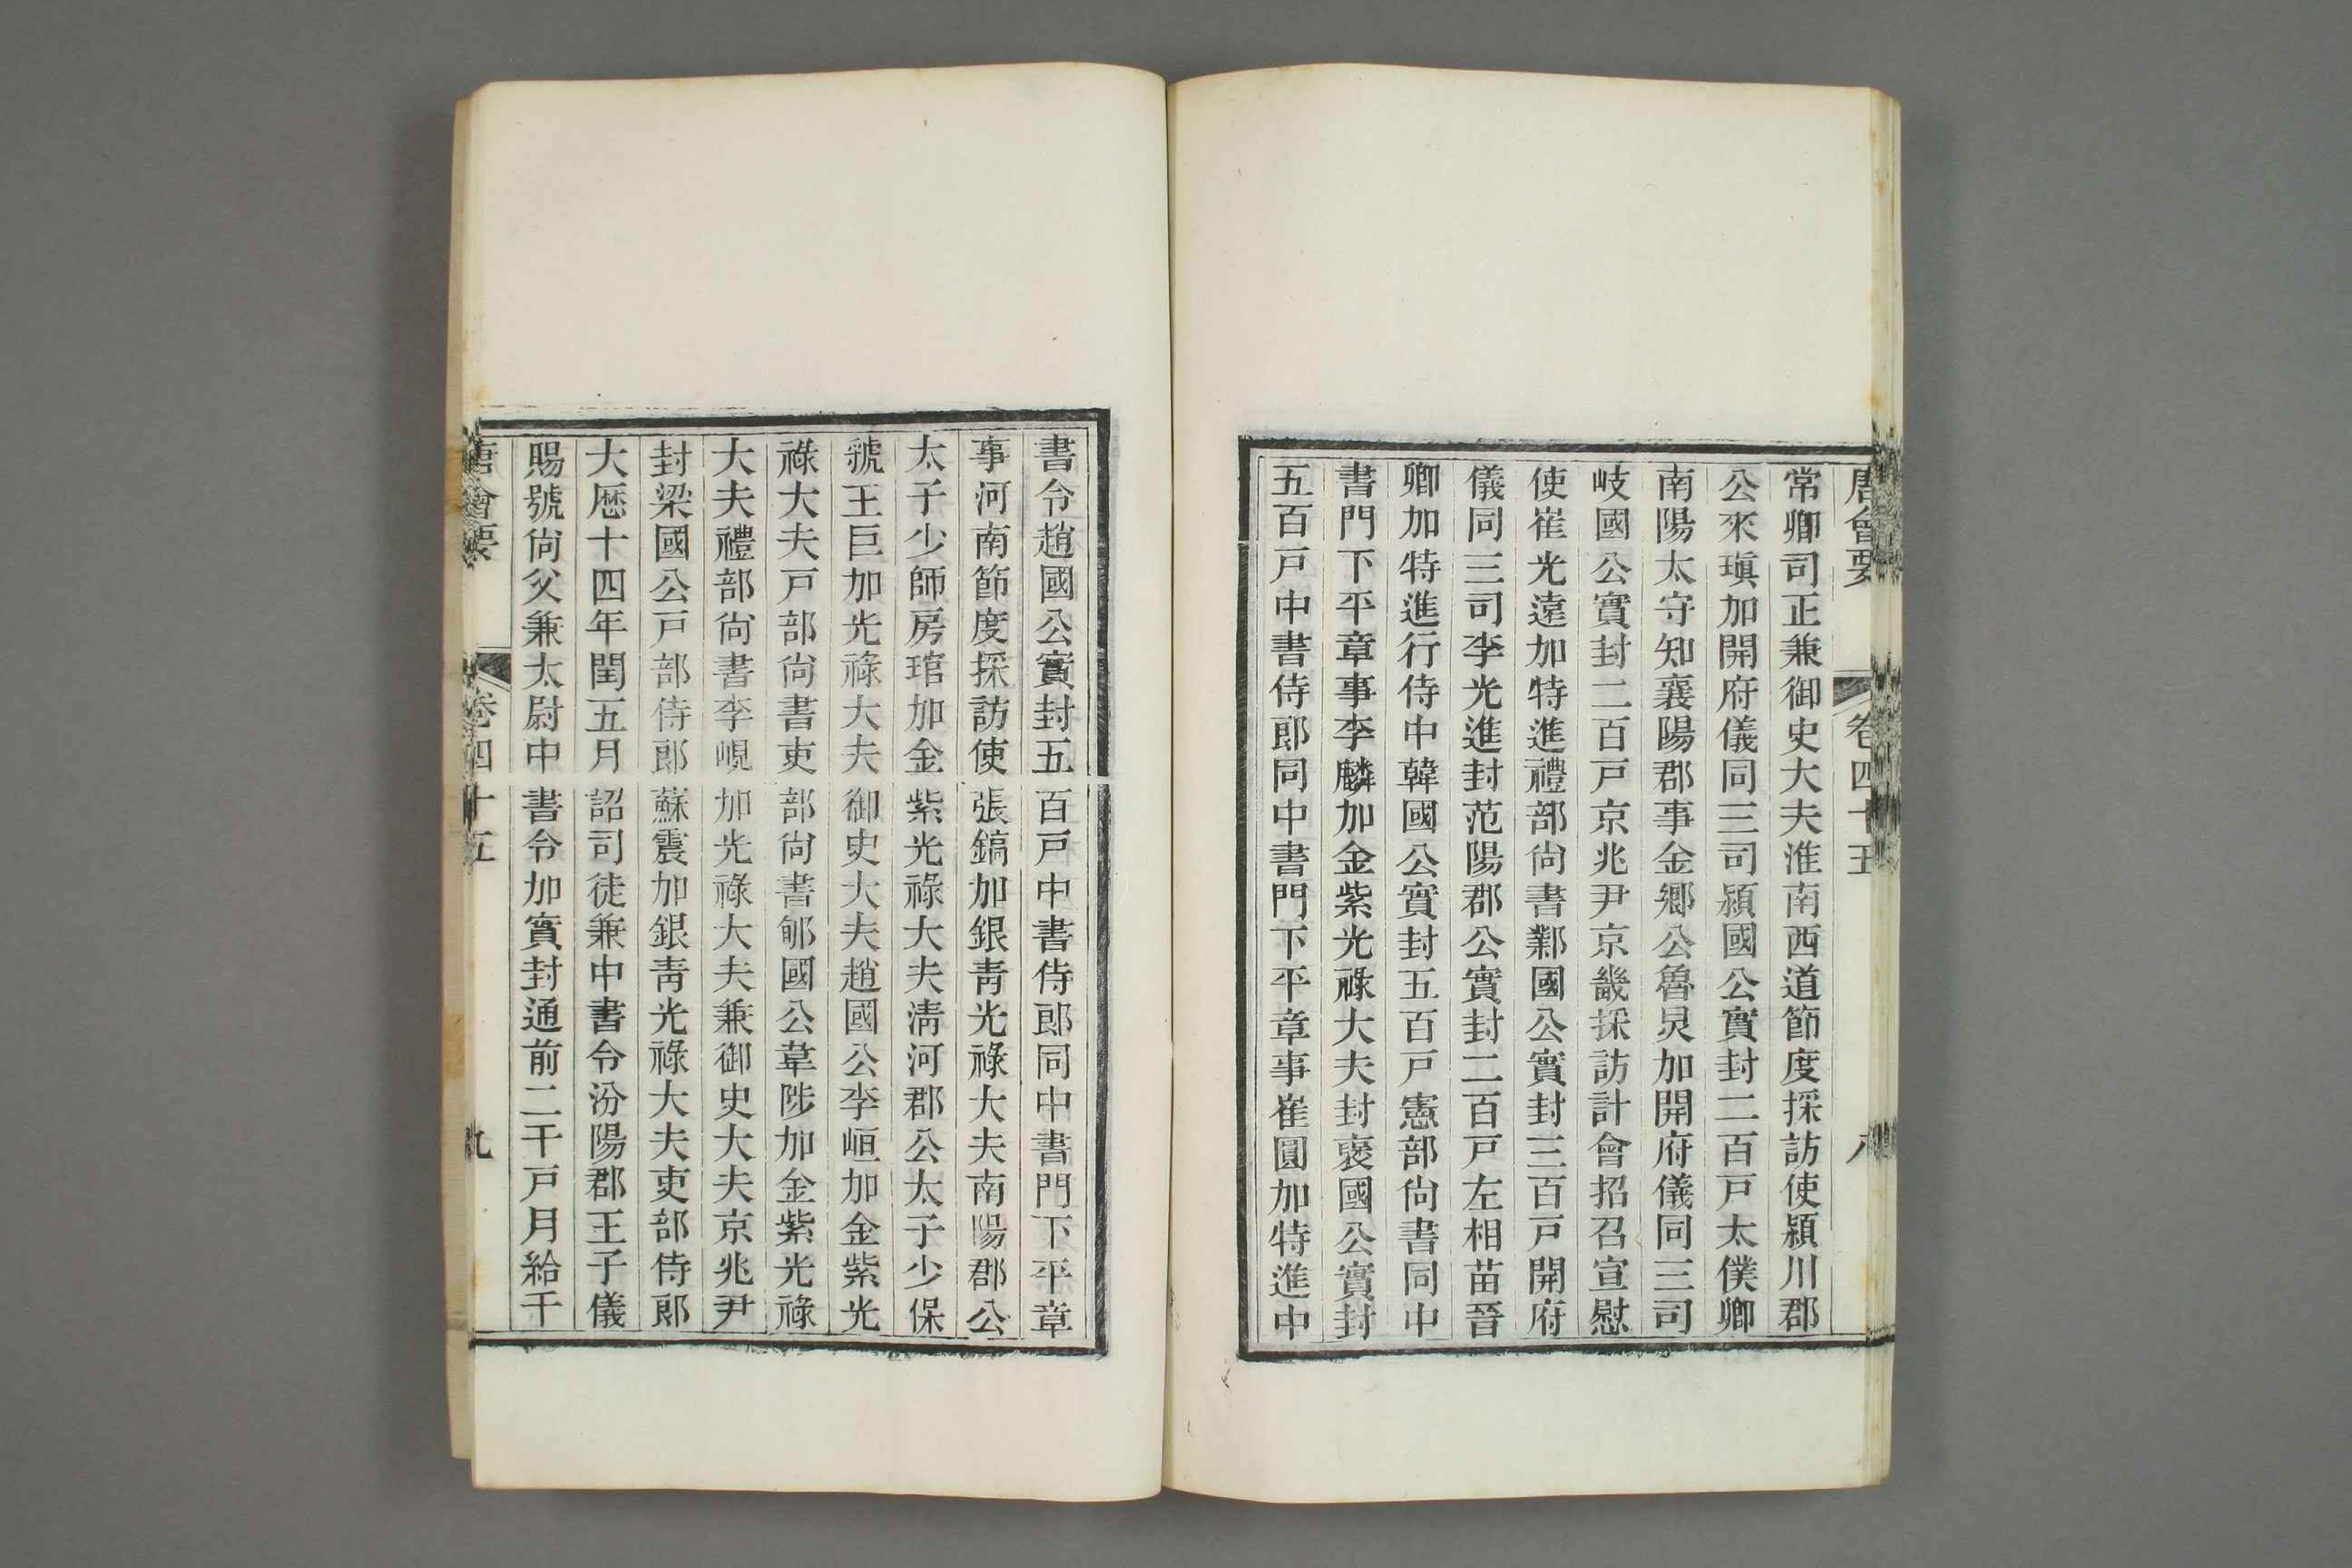 唐會要 卷四十五 八
常卿司正兼御史大夫淮南西道節度採訪使潁川郡
公來瑱加開府儀同三司潁國公實封二百戸太僕卿
南陽太守知襄陽郡事金鄉公魯炅加開府儀同三司
岐國公實封二百戸京兆尹京畿採訪計會招召宣慰
使崔光遠加特進禮部尙書鄴國公實封三百戸開府
儀同三司李光進封范陽郡公實封二百戸左相苗晉
卿加特進行侍中韓國公實封五百戸憲部尙書同中
書門下平章事李麟加金紫光祿大夫封襃國公實封
五百戸中書侍郎同中書門下平章事崔圓加特進中
書令趙國公實封五百戸中書侍郎同中書門下平章
事河南節度採訪使張鎬加銀靑光祿大夫南陽郡公
太子少師房琯加金紫光祿大夫淸河郡公太子少保
虢王巨加光祿大夫御史大夫趙國公李峘加金紫光
祿大夫戸部尙書吏部尙書郇國公韋陟加金紫光祿
大夫禮部尙書李峴加光祿大夫兼御史大夫京兆尹
封梁國公戸部侍郎蘇震加銀靑光祿大夫吏部侍郎
大厯十四年閏五月詔司徒兼中書令汾陽郡王子儀
賜號尙父兼太尉中書令加實封通前二千戸月給千
唐會要 卷四十五 九